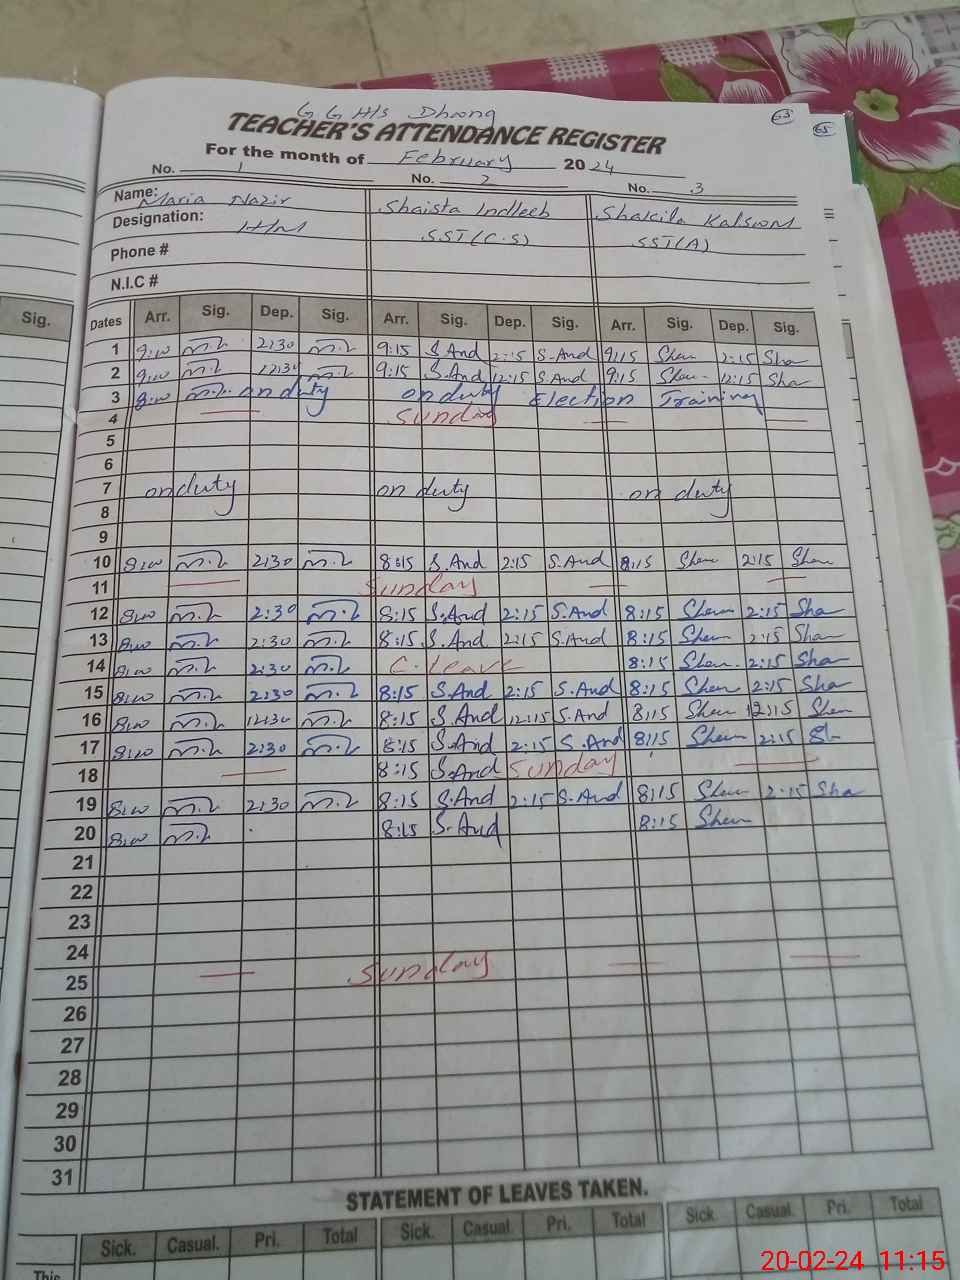 G G H/S Dhoong
63
65
TEACHER'S ATTENDANCE REGISTER
For the month of February 2024
No. 1 No. 2 No. 3
Name: Maria Nazir Shaista Indleeb Shakila Kalsoom
Designation: H/M SST(C.S) SST(A)
Phone #
N.I.C #
Sig.
Dates Arr. Sig. Dep. Sig. Arr. Sig. Dep. Sig. Arr. Sig. Dep. Sig.
1 9:00 2:30 9:15 S.And 2:15 S.And 9:15 Shem 2:15 Sha
2 9:00 12:30 9:15 S.And 12:15 S.And 9:15 Shem 12:15 Sha
3 8:00 on duty on duty Election Training
4 Sunday
5
6
7 on duty on duty on duty
8
9
10 8:00 2:30 8:15 S.And 2:15 S.And 8:15 Shem 2:15 Shem
11 Sunday
12 8:00 2:30 8:15 S.And 2:15 S.And 8:15 Shem 2:15 Sha
13 8:00 2:30 8:15 S.And 2:15 S.And 8:15 Shem 2:15 Sha
14 8:00 2:30 C.leave 8:15 Shem 2:15 Sha
15 8:00 2:30 8:15 S.And 2:15 S.And 8:15 Shem 2:15 Sha
16 8:00 12:30 8:15 S.And 12:15 S.And 8:15 Shem 12:15 Shem
17 8:00 2:30 8:15 S.And 2:15 S.And 8:15 Shem 2:15
18 8:15 S.And Sunday
19 8:00 2:30 8:15 S.And 2:15 S.And 8:15 Shem 2:15 Sha
20 8:00 8:15 S.And 8:15 Shem
21
22
23
24
25 Sunday
26
27
28
29
30
31
STATEMENT OF LEAVES TAKEN.
Sick. Casual. Pri. Total Sick. Casual. Pri. Total Sick Casual. Pri. Total
This
20-02-24 11:15